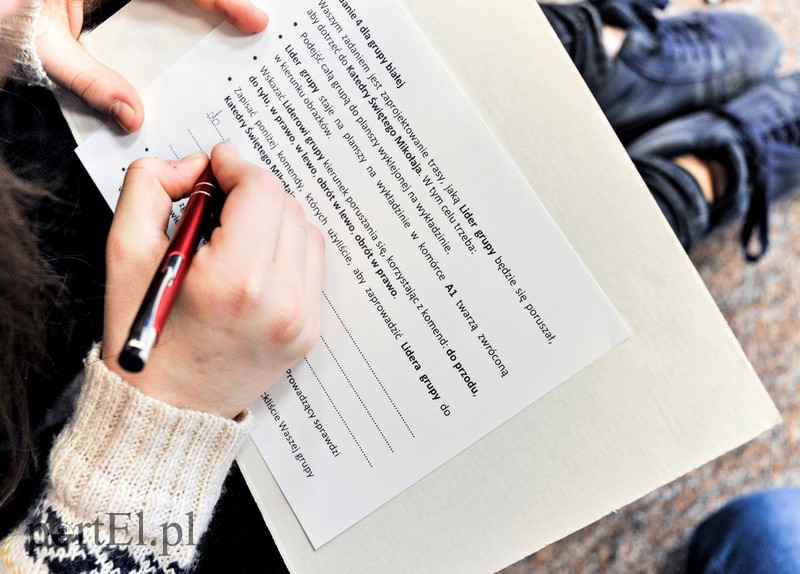 danie 4 dla grupy białej
Waszym zadaniem jest zaprojektowanie trasy, jaką Lider grupy będzie się poruszał,
aby dotrzeć do Katedry Świętego Mikołaja. W tym celu trzeba:
• Podejść całą grupą do planszy wyklejonej na wykładzinie.
• Lider grupy staje na planszy na wykładzinie w komórce A1 twarzą zwróconą
w kierunku obrazów.
• Wskazać Liderowi grupy kierunek poruszania się, korzystając z komend: do przodu,
do tyłu, w prawo, w lewo, obrót w lewo, obrót w prawo.
• Zapisać poniżej komendy, których użyliście, aby zaprowadzić Lidera grupy do
Katedry Świętego Mikołaja
do
Prowadzący sprawdzi
Waszej grupy
portEl.pl